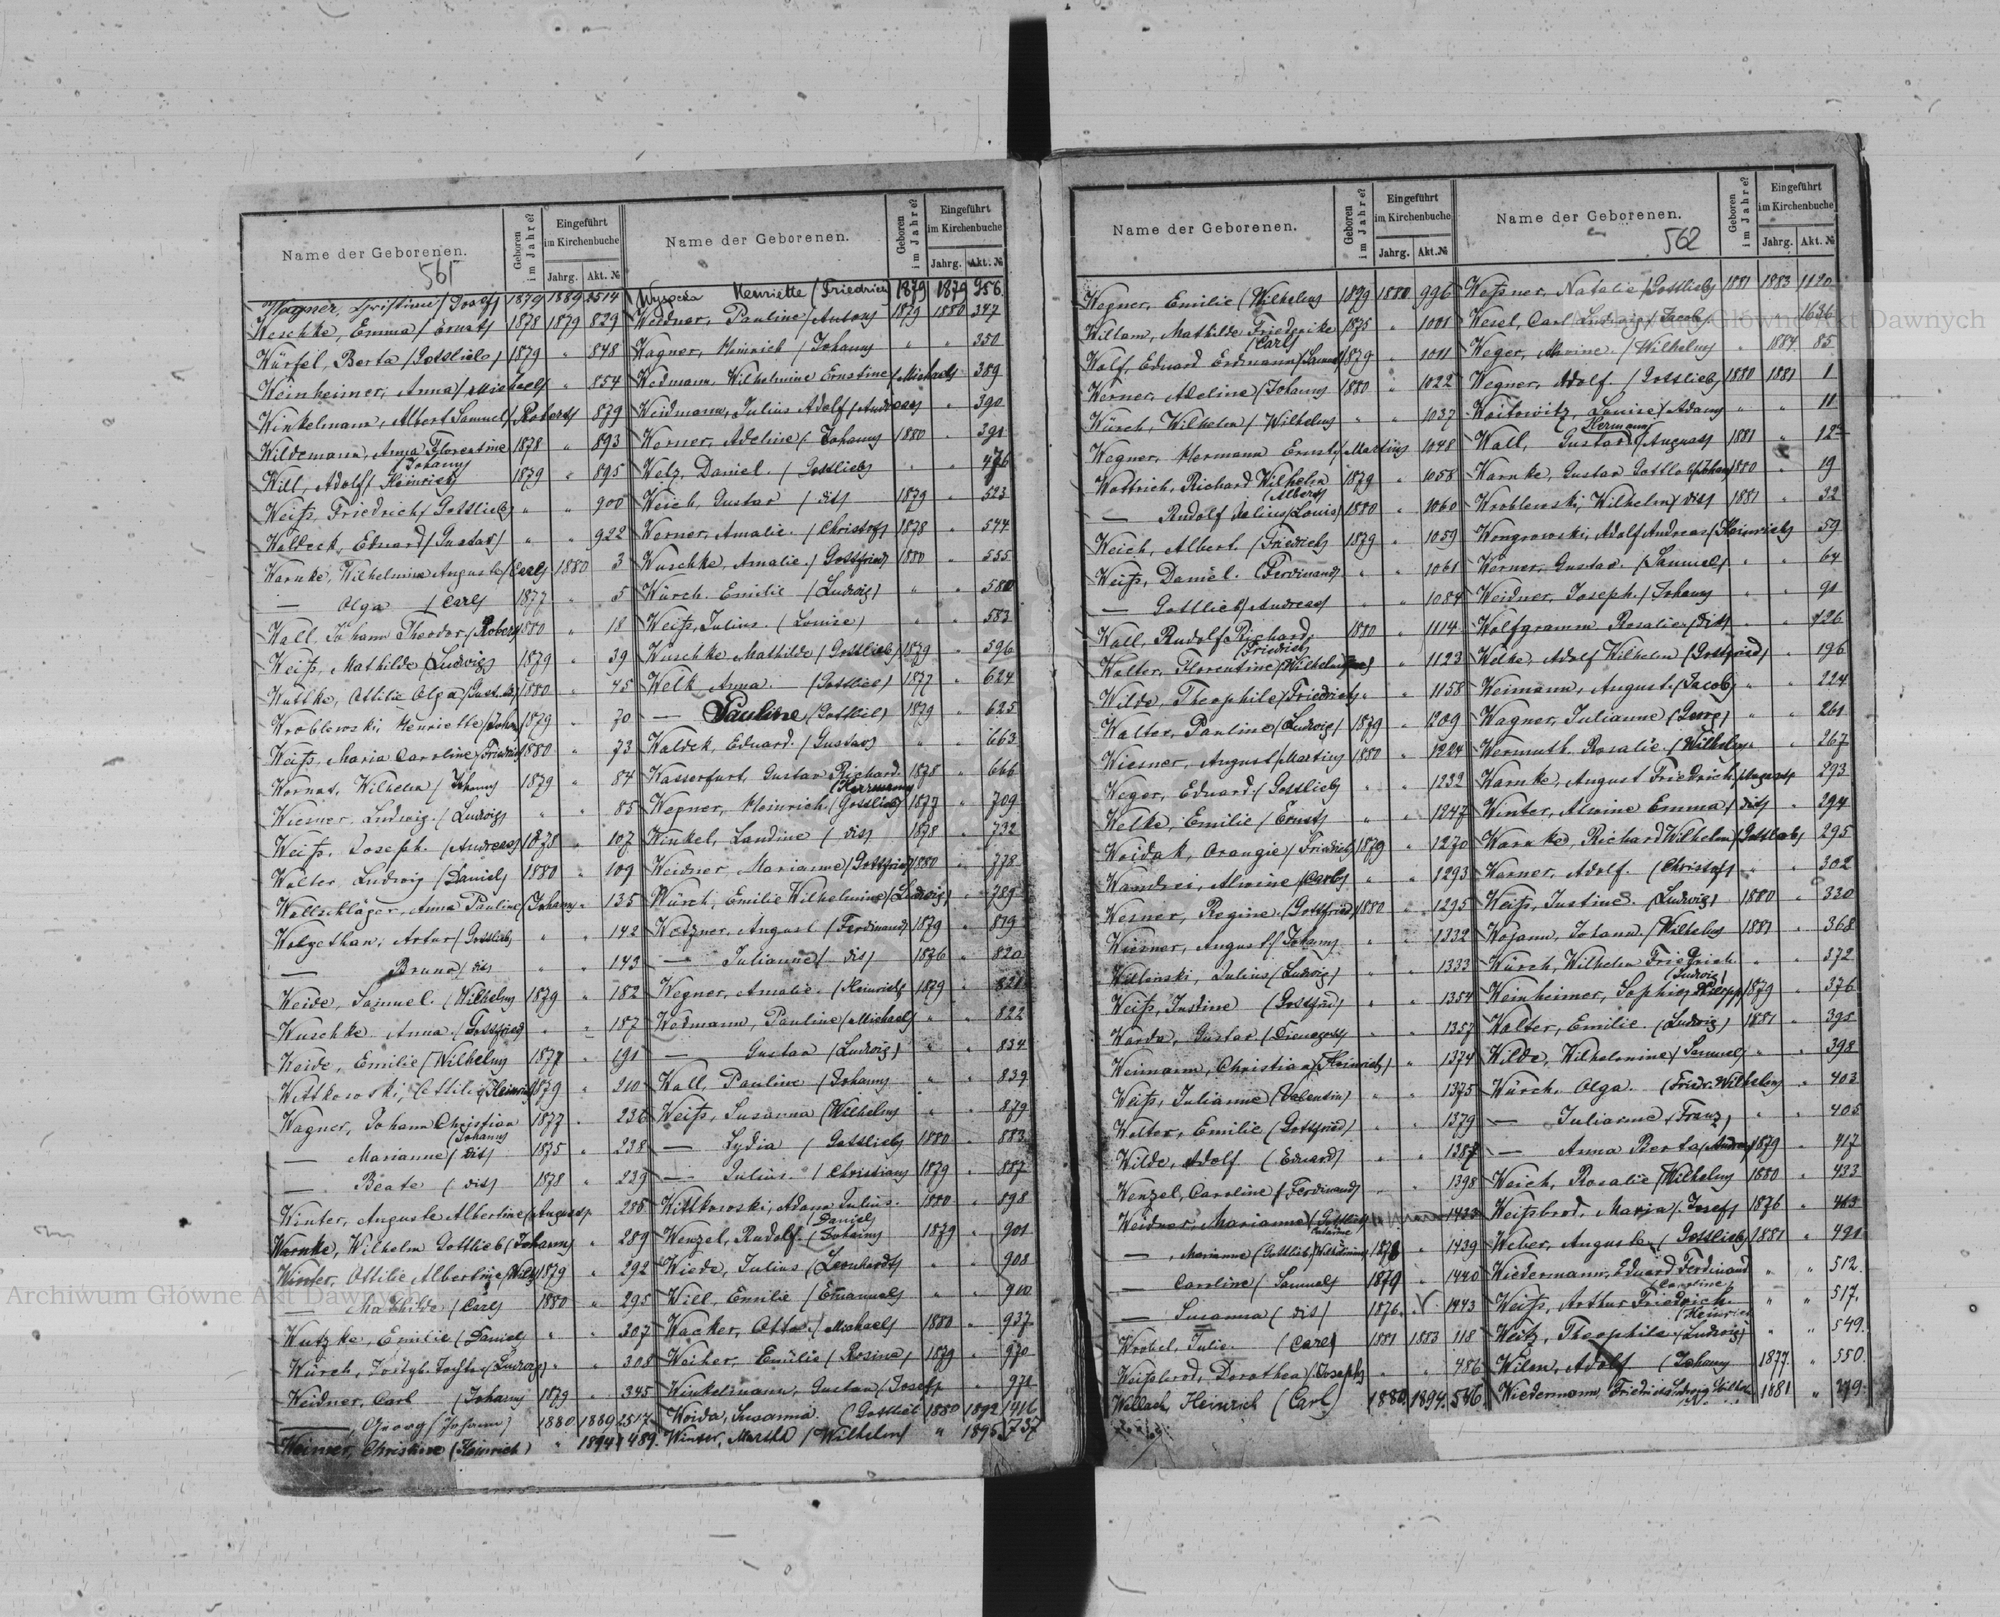 Name der Geborenen.
561
Geboren im Jahre?
Eingeführt im Kirchenbuche
Jahrg. Akt. №
Wagner, Cristine (Josef) 1879 1889 2514
Weschke, Emma (Ernst) 1878 1879 829
Würfel, Berta (Gottlieb) 1879 " 848
Weinheimer, Anna (Michael) " 854
Winkelmann, Albert Samuel (Robert) " 879
Wildemann, Anna Florentine 1878 " 893
(Johann)
Will, Adolf Heinrich 1879 " 895
Weiß, Friedrich (Gottlieb) " " 900
Waldeck, Eduard (Gustav) " " 922
Warnke, Wilhelmine Auguste (Carl) 1880 3
— Olga (Carl) 1877 " 5
Wall, Johann Theodor (Robert) 1880 " 18
Weiß, Mathilde (Ludwig) 1879 " 39
Wuttke, Ottilie Olga (Gust.) 1880 " 45
Wroblewski, Henriette (Joh.) 1879 " 70
Weiß, Maria Caroline (Friedrich) 1880 " 73
Wornat, Wilhelm (Johann) 1879 " 84
Wiesner, Ludwig (Ludwig) " " 85
Weiß, Joseph (Andreas) 1878 " 107
Walter Ludwig (Daniel) 1880 " 109
Wallschläger, Anna Pauline (Johann) " 135
Wolgethan, Artur (Gottlieb) " " 142
— Bruno (dit) " " 143
Weide, Samuel (Wilhelm) 1879 " 182
Wuschke Anna (Gottfried) " " 187
Weide, Emilie (Wilhelm) 1877 " 191
Wittkowski, Ottilie (Heinrich) 1879 " 210
Wagner, Johann Christian 1877 " 236
(Johann)
— Marianne (dit) 1875 " 238
— Beate (dit) 1878 " 239
Winter, Auguste Albertine (August) " 286
Warnke, Wilhelm Gottlieb (Johann) " 289
Winter, Ottilie Albertine (Wilh.) 1879 " 292
— Mathilde (Carl) 1880 " 295
Wutzke, Emilie (Daniel) " " 307
Würch, (Ludwig) " " 308
Weidner, Carl (Johann) 1879 " 345
— Georg (Johann) 1880 1889 2517
Weimer, Christine (Heinrich) " 1894 1489
Name der Geborenen.
Geboren im Jahre?
Eingeführt im Kirchenbuche
Jahrg. Akt. №
Henriette (Friedrich) 1879 1879 956
Weidner, Pauline (Anton) 1879 1880 347
Wagner, Heinrich (Johann) " " 350
Wedmann, Wilhelmine Ernstine (Michael) 389
Weidmann, Julius Adolf (Andreas) " 390
Werner, Adeline (Johann) 1880 " 391
Welz, Daniel (Gottlieb) " " 476
Weich, Gustav (dit) 1879 " 523
Werner, Amalie (Christof) 1878 " 544
Wuschke, Amalie (Gottfried) 1880 " 555
Würch Emilie (Ludwig) " 580
Weiß, Julius (Louise) " " 583
Wuschke Mathilde (Gottlieb) 1879 " 596
Welk Anna (Gottlieb) 1877 " 624
— Pauline (Gottlieb) 1879 " 625
Waldek, Eduard (Gustav) " " 663
Wasserfurt, Gustav Richard 1878 " 666
(Herrmann)
Wegner, Heinrich (Gottlieb) 1877 " 709
Winkel, Landine (dit) 1878 " 732
Weidner Marianne (Gottfried) 1880 " 778
Würch, Emilie Wilhelmine (Ludwig) " 789
Wetzner, August (Ferdinand) 1879 " 819
— Julianne (dit) 1876 " 820
Wegner, Amalie (Heinrich) 1879 " 821
Wedmann, Pauline (Michael) " " 822
— Gustav (Ludwig) " " 834
Wall, Pauline (Johann) " " 839
Weiß, Susanna (Wilhelm) " " 879
— Lydia (Gottlieb) 1880 " 883
— Julius (Christian) 1879 " 887
Wittkowski, Adam Julius 1880 " 898
(Daniel)
Wenzel, Rudolf (Johann) 1879 " 901
Wiede, Julius (Leonhardt) " 908
Will, Emilie (Emanuel) " " 910
Wacker, Otto (Michael) 1880 " 937
Weiher, Emilie (Rosine) 1879 " 970
Winkelmann, Gustav (Josef) " 971
Woida, Susanna (Gottlieb) 1880 1892 1416
Winter, Martha (Wilhelm) " 1895 1737
Name der Geborenen.
Geboren im Jahre?
Eingeführt im Kirchenbuche
Jahrg. Akt. №
Wegner, Emilie (Wilhelm) 1879 1880 996
Willam, Mathilde Friederike 1875 " 1001
(Carl)
Wolf, Eduard Erdmann (Samuel) 1879 " 1011
Werner, Adeline (Johann) 1880 " 1022
Würch, Wilhelm (Wilhelm) " " 1037
Wegner, Hermann Ernst (Martin) 1048
Wottrich, Richard Wilhelm 1879 " 1058
(Albert)
— Rudolf Julius (Louis) 1880 " 1060
Weich, Albert (Friedrich) 1879 " 1059
Weiß, Daniel (Ferdinand) " " 1061
— Gottlieb (Andreas) " " 1084
Wall, Rudolf Richard 1880 " 1114
(Friedrich)
Walter, Florentine (Wilhelm) " 1123
Wilde, Theophile (Friedrich) " " 1158
Walter, Pauline (Ludwig) 1879 " 1209
Wiesner, August (Martin) 1880 " 1224
Weger, Eduard (Gottlieb) " " 1232
Welke, Emilie (Ernst) " " 1247
Woidak, Orangie (Friedrich) 1879 " 1270
Wandrei, Alwine (Carl) " " 1293
Wesner, Regine (Gottfried) 1880 " 1295
Wiesner, August (Johann) " " 1332
Wislinski, Julius (Ludwig) " " 1333
Weiß, Justine (Gottfried) " " 1354
Warda, Gustav " " 1357
Weimann, Christian (Heinrich) " 1374
Weiß, Julianne (Valentin) " " 1375
Walter, Emilie (Gottfried) " " 1379
Wilde, Adolf (Eduard) " " 1387
Wenzel, Caroline (Ferdinand) " " 1398
Weidner, Marianne (Gottlieb 1433
— Marianne (Gottlieb) 1878 " 1439
— Caroline (Samuel) 1879 " 1440
— Susanna (dit) 1876 1443
Wrobel, Julie (Carl) 1881 1883 118
Weißbrod, Dorothea (Joseph) " " 486
Wallach, Heinrich (Carl) 1880 1894 586
Name der Geborenen.
562
Geboren im Jahre?
Eingeführt im Kirchenbuche
Jahrg. Akt. №
Weißner, Natalie (Gottlieb) 1881 1883 1120
Wesel, Carl Ludwig (Jacob) " 1636
Weger, Alwine (Wilhelm) " 1884 85
Wegner, Adolf (Gottlieb) 1880 1881 1
Woitowitz, Louise (Adam) " " 11
(Hermann)
Wall, Gustav (August) 1881 " 12
Warnke, Gustav Gottlieb (Johann) 1880 " 19
Wroblewski, Wilhelm (dit) 1881 " 32
Wongrowski, Adolf Andreas (Heinrich) 59
Werner, Gustav (Samuel) " " 64
Weidner, Joseph (Johann) " " 91
Wolfgramm Rosalie (dit) " " 126
Welke, Adolf Wilhelm (Gottfried) " 196
Weimann, August (Jacob) " " 224
Wagner, Julianne (Georg) " " 261
Wermuth Rosalie (Wilhelm) " 267
Warnke, August Friedrich (August) 293
Winter, Alwine Emma (dit) " 294
Warnke, Richard Wilhelm (Gottlieb) 295
Warner, Adolf (Christof) " " 302
Weiß, Justine (Ludwig) 1880 " 330
Wojann, Johann (Wilhelm) 1881 " 368
Würch, Wilhelm Friedrich " 372
(Ludwig)
Weinheimer, Sophie (Philipp) 1879 " 376
Walter, Emilie (Ludwig) 1881 " 395
Wilde, Wilhelmine (Samuel) " " 398
Würch, Olga (Friedr. Wilhelm) " 403
— Julianne (Franz) " " 405
— Anna Berta (Andreas) 1879 " 417
Weich, Rosalie (Wilhelm) 1880 " 433
Weißbrod, Maria (Josef) 1876 " 463
Weber, Auguste (Gottlieb) 1881 " 491
Wiedermann, Eduard Ferdinand " " 512
(Caroline)
Weiß, Arthur Friedrich " " 517
(Heinrich)
Weitz, Theophile (Ludwig) " " 549
Wilm, Adolf (Johann) 1877 " 550
Wiedermann, Friedrich Ludwig 1881 "
Archiwum Główne Akt Dawnych
Archiwum Główne Akt Dawnych